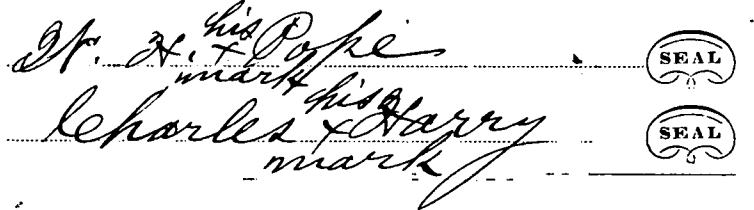 W. H. his x mark Pope SEAL
Charles his x mark Harry SEAL